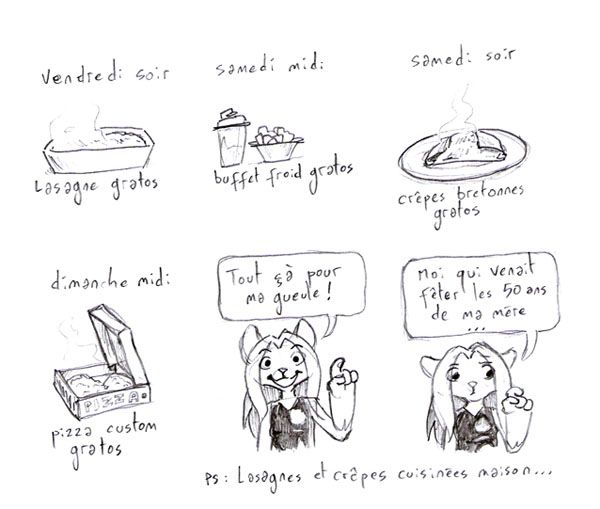 vendredi soir
Lasagne gratos
samedi midi
buffet froid gratos
samedi soir
crêpes bretonnes
gratos
dimanche midi
PIZZA
pizza custom
gratos
Tout çà pour
ma gueule !
Moi qui venait
fêter les 50 ans
de ma mère
...
PS : Lasagnes et crêpes cuisinées maison...